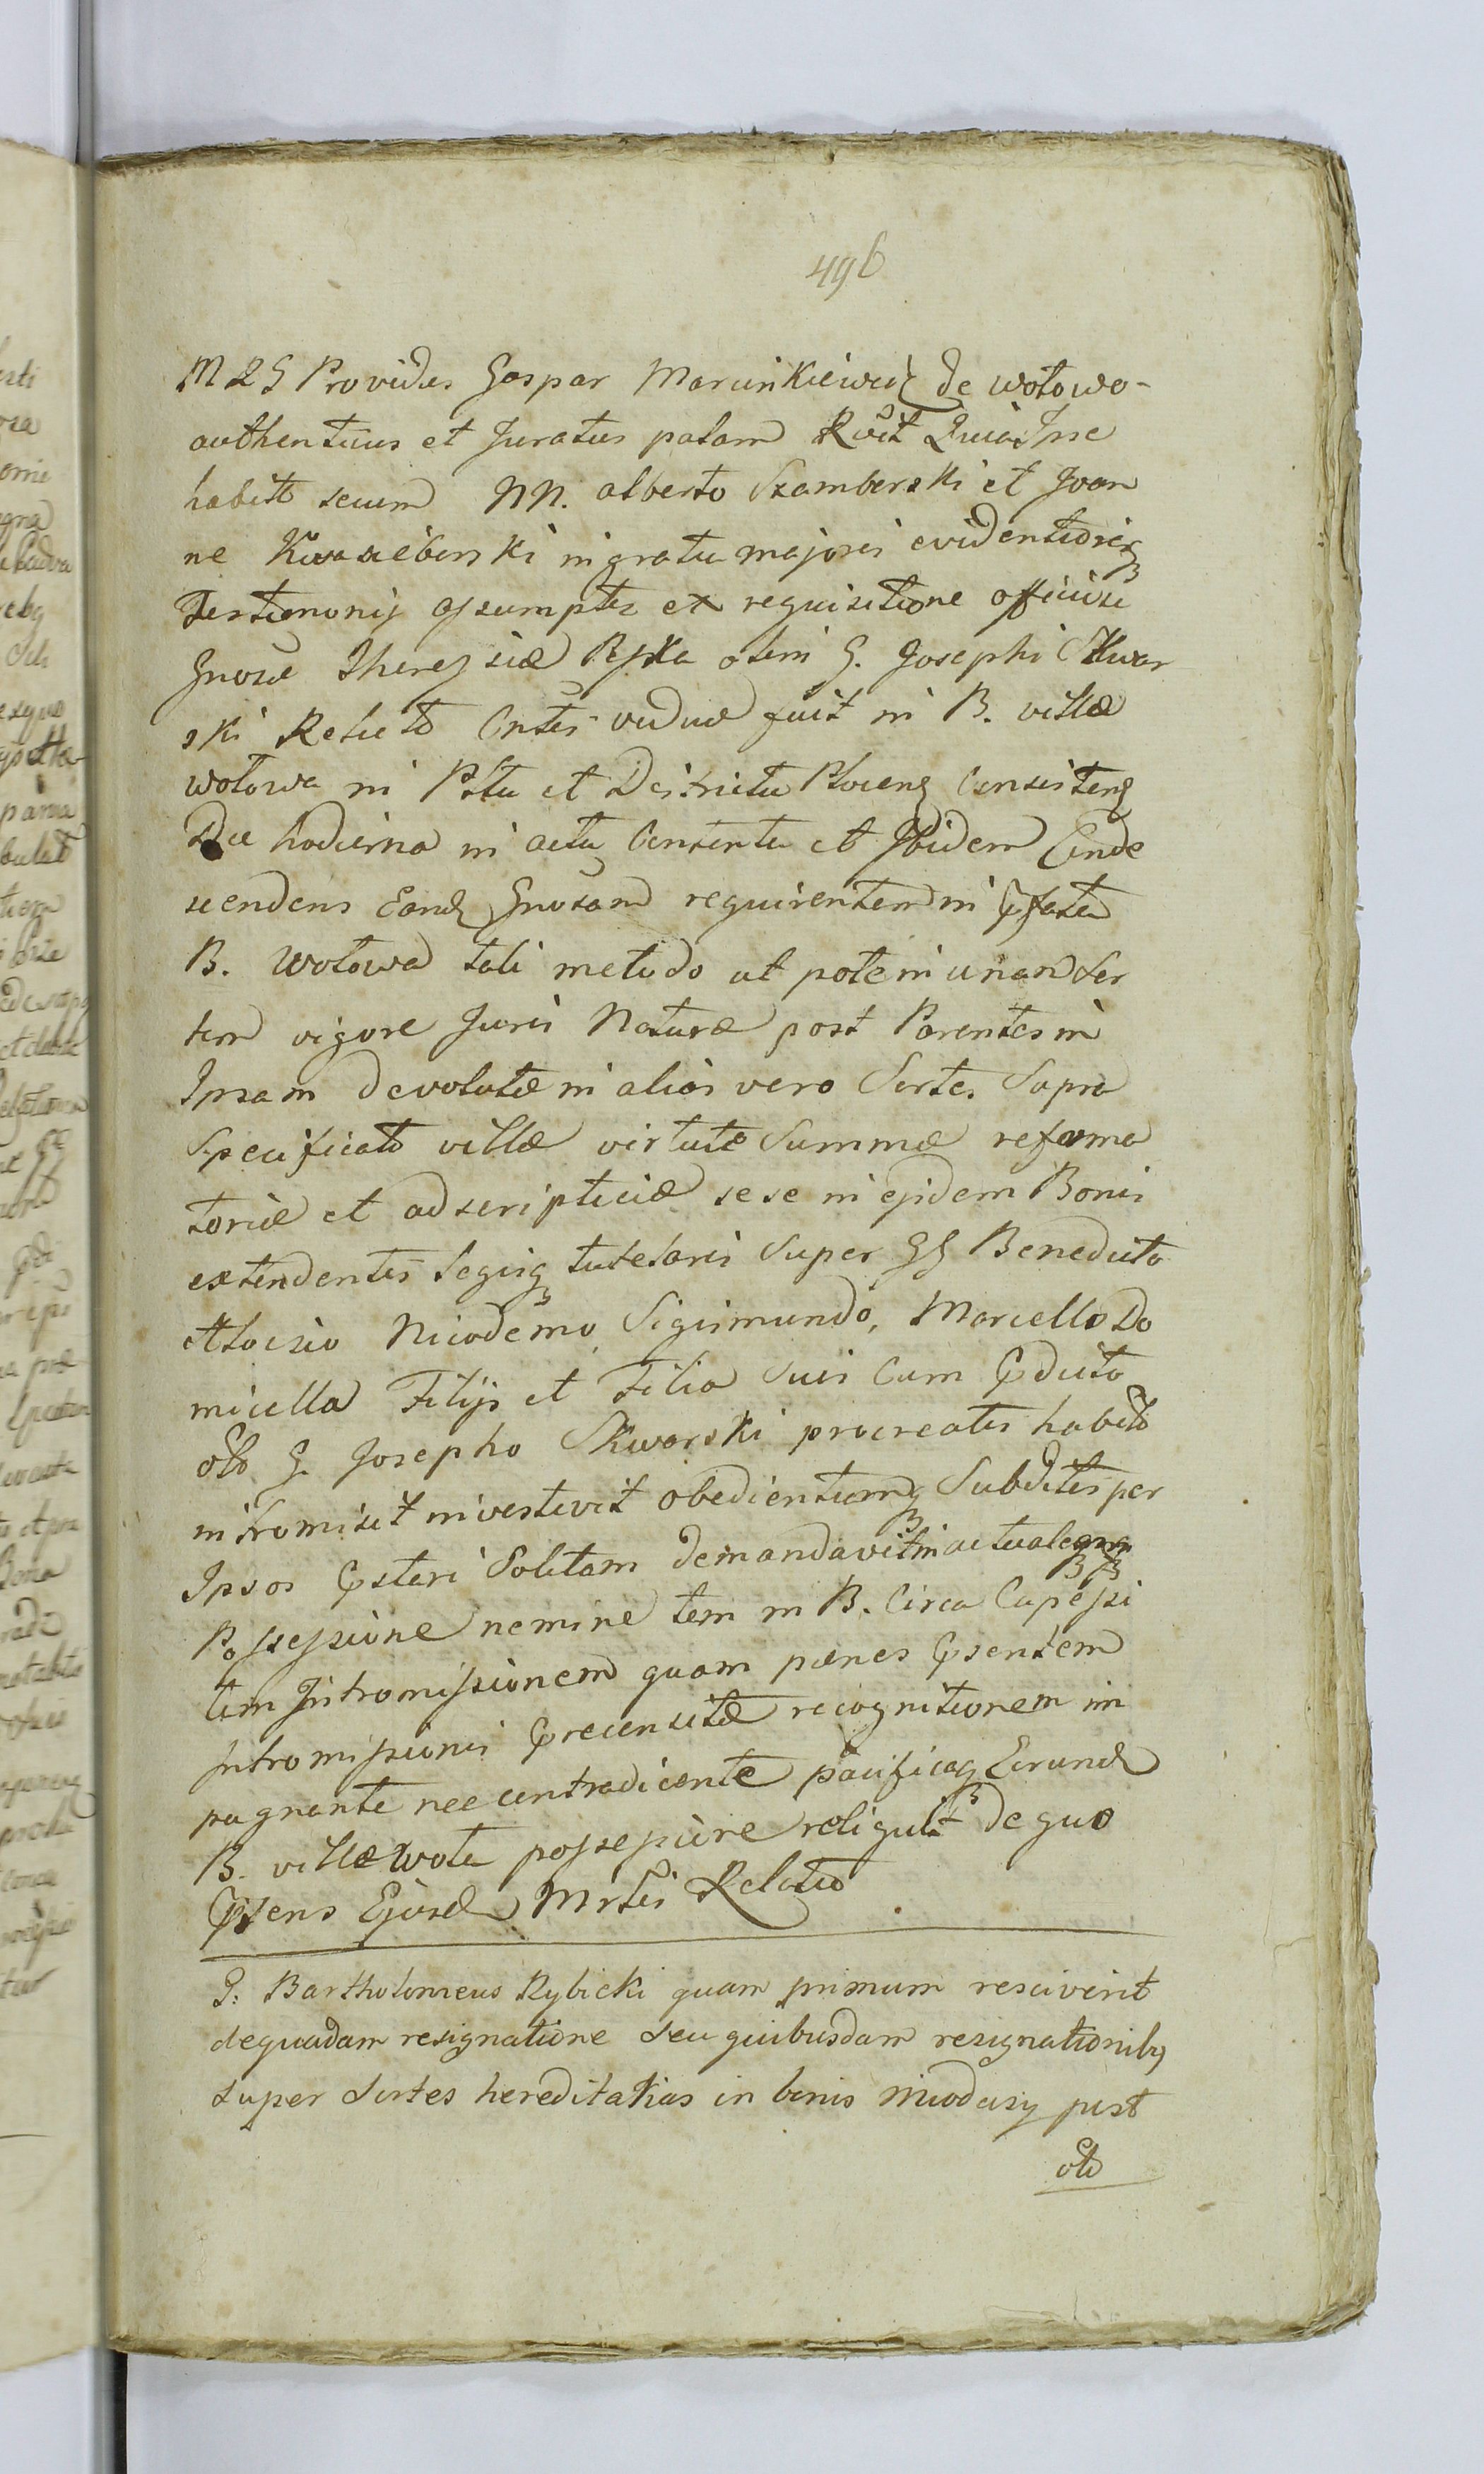 496
M R G Providus Gaspar Marcinkiewicz de Wołowo
authenticus et Juratus palam Rcvit Quia Ipse
habitis secum NN. Alberto Szamborski et Joan
ne Kwasieborski in gratiam majoris evidentioriq
Testimonij assumptis ex requisitione officiosi
Gnosæ Theresiæ Rpska olim G. Josephi Skwar
ski Relictæ Cntis viduæ fuit in B. villæ
Wołowa in Pltu et Districtu Plocens Consistens
Die hodierna in actu Contentu et Ibidem Conde
scendens Eand Gnosam requirentem in Pfata
B. Wołowa tali metodo ut pote in unam Sor
tem vigore Juris Naturæ post Parentes in
Ipsam devolutæ in alias vero Sortes Supra
Specificatæ villæ virtute Summæ reforma
toriæ et adscripticiæ sese in ejsdem Bonis
extendentis Legisq tutelaris Super GG Benedicto
Aloisio Nicodemo, Sigismundo, Marcello Do
micella Filijs et Filia Suis Cum Pdicto
olo G. Josepho Skwarski procreatis habito
intromisit investivit obedientiamq Subditis per
Ipsos Pstari Solitam demandavit in actualemq
Possessione nemine tem in B. Circa Capessi
tim Intromissionem quam penes Psentem
Intromissionis Precensitæ recognitionem im
pugnante nec contradicente pacificaq Eorund
B. villæ Woła possessione reliquit de quo
Psens Ejusd Mrlis Relatio
G. Bartholomeus Rybicki quam primum resciverit
de quadam resignatione seu quibusdam resignationibq
super Sortes hereditarias in bonis Miodusy post
olo